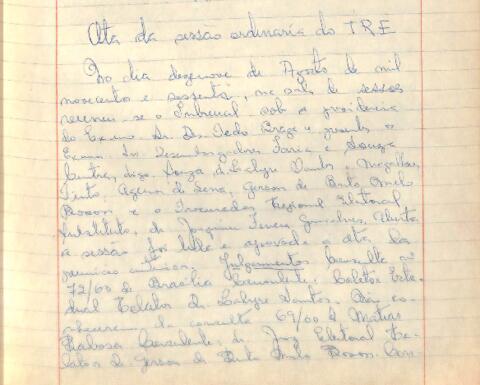 Ata da sessão ordinaria do TRE
No dia dezenove de Agosto de mil
novecentos e sessenta, na sala de sessões
reuniu-se o Tribunal sob a presidencia
do Exmo Sr. Dr. Braga e presentes o
Exmo Sr. Desembargador Faria e Souza
digo, Souza d. Lalyre Santos, Magalhães
Pinto, Agenor de Sena, Gerson de Brito Melo
Boson e o Procurador Regional Eleitoral
Substituto, dr. Joaquim Gonçalves. Aberta
a sessão foi lida e aprovada a ata da
reunião anterior. Julgamentos Consulta nº
72/60 de Brasilia
Relator dr. Lalyre Santos. Não co-
nheceram da consulta 69/60 de Matias
Barbosa Consulente, dr. Juiz Eleitoral Re-
lator d. Gerson de Brito Melo Boson. Con-